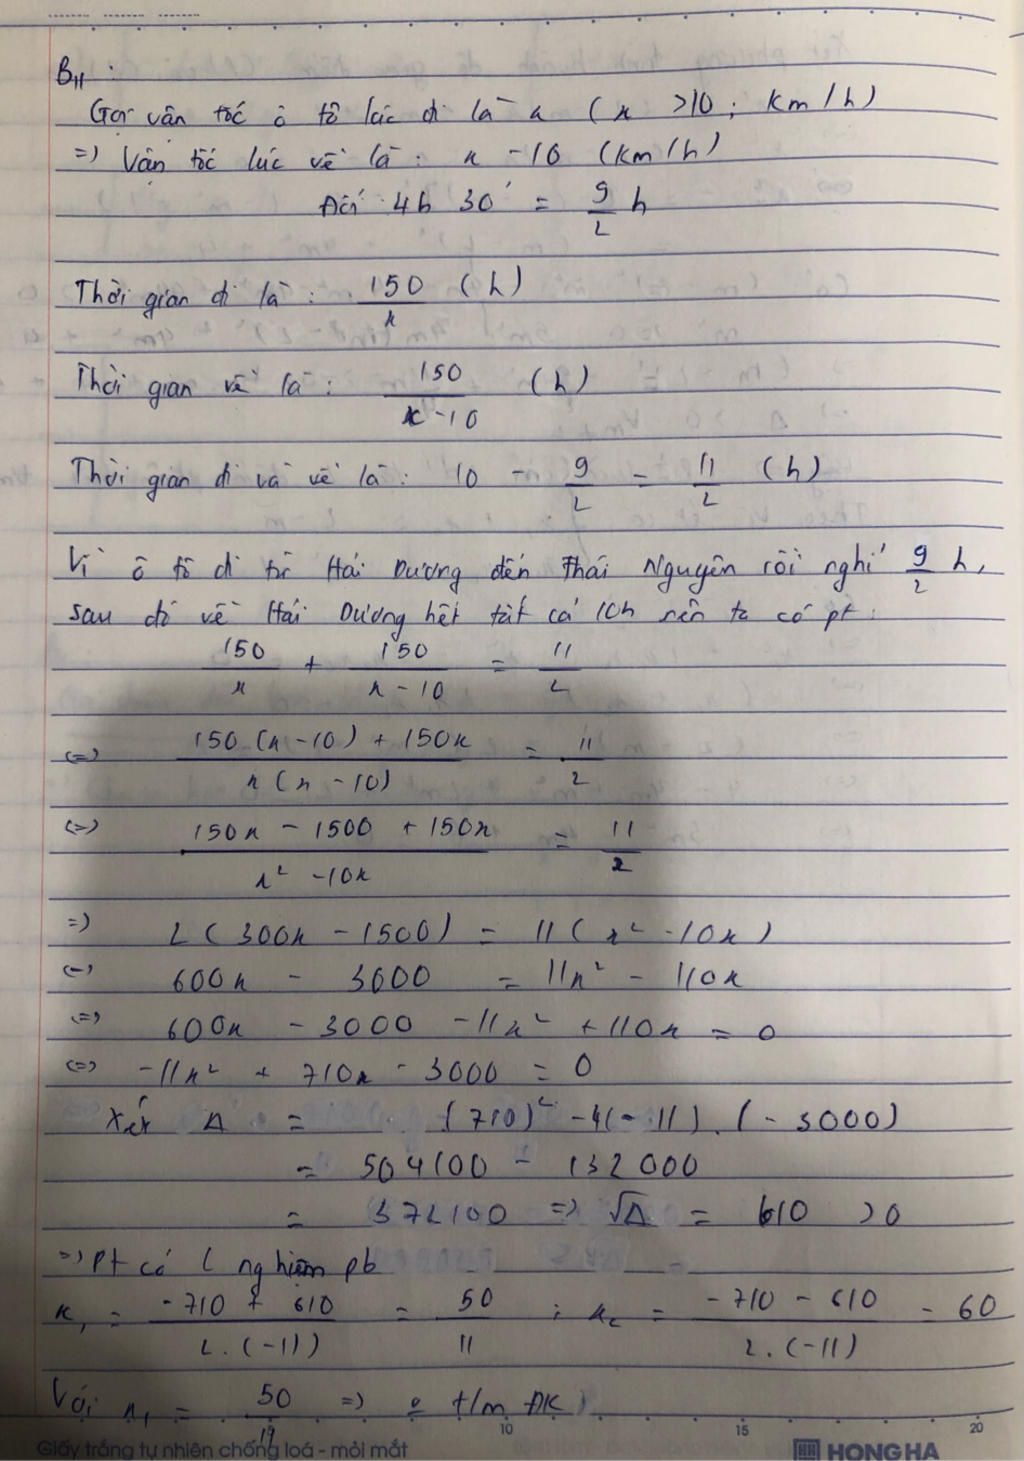 B11 :
Gọi vận tốc ô tô lúc đi là x ( x > 10 ; km / h )
=) Vận tốc lúc về là : x - 10 (km / h )
Đổi 4h 30' = 9/2 h
Thời gian đi là : 150/x ( h )
Thời gian về là : 150/(x - 10) ( h )
Thời gian đi và về là : 10 - 9/2 = 11/2 ( h )
Vì ô tô đi từ Hải Dương đến Thái Nguyên rồi nghỉ 9/2 h,
sau đó về Hải Dương hết tất cả 10h nên ta có pt :
150/x + 150/(x - 10) = 11/2
(=) (150 (x - 10) + 150x)/(x ( x - 10)) = 11/2
(=) (150x - 1500 + 150x)/(x² - 10x) = 11/2
=) 2 ( 300x - 1500 ) = 11 ( x² - 10x )
(=) 600x - 3000 = 11x² - 110x
(=) 600x - 3000 - 11x² + 110x = 0
(=) -11x² + 710x - 3000 = 0
Xét Δ = (710)² - 4(- 11) . ( - 3000 )
= 504100 - 132000
= 372100 => √Δ = 610 > 0
=) Pt có 2 nghiệm pb
x₁ = (-710 + 610)/(2 . (-11)) = 50/11 ; x₂ = (-710 - 610)/(2 . (-11)) = 60
Với x₁ = 50/11 => t/m ĐK )
10 15 20
Giấy trắng tự nhiên chống loá - mỏi mắt HH HONG HA